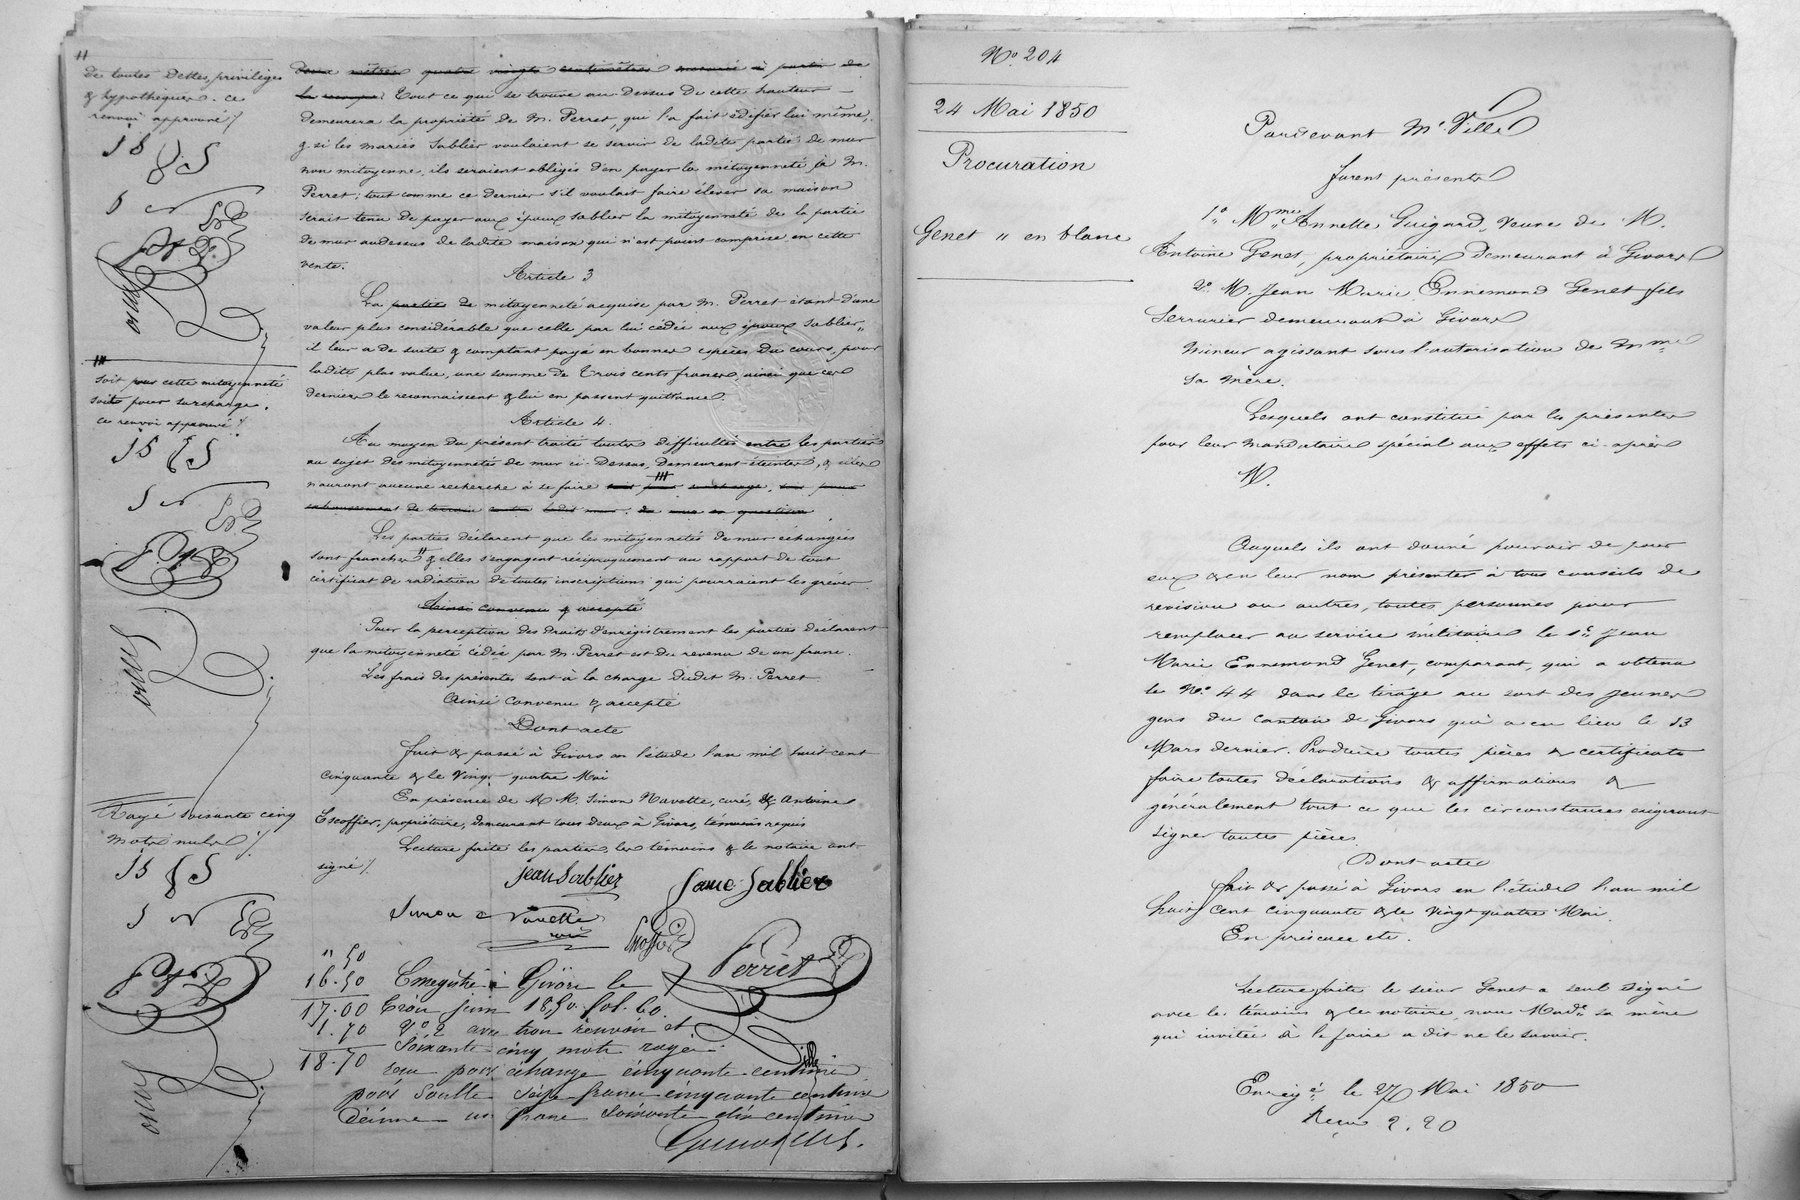 "
de toutes dettes, privilèges
& hypothèques. ce
renvoi approuvé /.
J S
###
Soit pour cette mitoyenneté
soit pour surcharge.
Ce renvoi approuvé /.
J S
Rayé soixante cinq
mots nuls /.
J S
douze mètres quatre vingts centimètres mesuré à partir de
Tout ce qui se trouve au dessus de cette hauteur
demeurera la propriété de M. Perret, qui l'a fait édifier lui même,
& si les mariés Sablier voulaient se servir de ladite partie de mur
non mitoyenne, ils seraient obligés d'en payer la mitoyenneté à M.
Perret; tout comme ce dernier s'il voulait faire élever sa maison
serait tenu de payer aux époux Sablier la mitoyenneté de la partie
de mur audessus de ladite maison qui n'est point comprise en cette
vente.
Article 3
La partie de mitoyenneté acquise par M. Perret étant d'une
valeur plus considérable que celle par lui cédée aux époux Sablier,
il leur a de suite & comptant payé en bonnes espèces du cours, pour
ladite plus value, une somme de trois cents francs, ainsi que ces
derniers le reconnaissent & lui en passent quittance.
Article 4.
Au moyen du présent traité toutes difficultés entre les parties
au sujet des mitoyennetés de mur ci-dessus, demeurent éteintes, & elles
n'auront aucune recherche à se faire soit pour surcharge, soit pour
exhaussement de terrain contre ledit mur. du mur en question.
Les parties déclarent que les mitoyennetés de mur échangées
sont franches " & elles s'engagent réciproquement au rapport de tout
certificat de radiation de toutes inscriptions qui pourraient les grever.
Ainsi convenu & accepté
Pour la perception des droits d'enregistrement les parties déclarent
que la mitoyenneté cédée par M. Perret est du revenu de un franc.
Les frais des présentes sont à la charge dudit M. Perret
Ainsi convenu & accepté
Dont acte
Fait & passé à Givors en l'étude l'an mil huit cent
cinquante & le vingt quatre Mai
En présence de MM. Simon Navette, curé, & Antoine
Escoffier, propriétaire, demeurant tous deux à Givors, témoins requis
Lecture faite les parties, les témoins & le notaire ont
signé /.
jean Sablier
Sablier
Simon Navette
Perret
" 50
16.50
17.00
1.70
18.70
Enregistré à Givors le
trois juin 1850. fol. 60.
Vo 2 avec trois renvois et
Soixante cinq mots rayés
reçu pour échange cinquante centimes
pour soulte seize francs cinquante centimes
Décime un franc soixante dix centimes
No. 204
24 Mai 1850
Procuration
Genet " en blanc
Pardevant Me Ville
furent présents
1o Mme Annette Guigard, veuve de M.
Antoine Genet, propriétaire demeurant à Givors
2o M. Jean Marie Ennemond Genet fils
Serrurier demeurant à Givors
Mineur agissant sous l'autorisation de Mme
sa mère.
Lesquels ont constitué par les présentes
pour leur mandataire spécial aux effets ci-après
M.
Auquels ils ont donné pouvoir de pour
eux & en leur nom présenter à tous conseils de
revision ou autres, toutes personnes pour
remplacer au service militaire le sr. Jean
Marie Ennemond Genet, comparant, qui a obtenu
le No. 44 dans le tirage au sort des jeunes
gens du canton de Givors qui a eu lieu le 13
Mars dernier. Produire toutes pièces & certificats
faire toutes déclarations & affirmations &
généralement tout ce que les circonstances exigeront
signer toutes pièces.
Dont acte
Fait & passé à Givors en l'étude l'an mil
huit cent cinquante & le vingt quatre Mai.
En présence etc.
Lecture faite le sieur Genet a seul signé
avec les témoins & le notaire, non Made. sa mère
qui invitée à le faire a dit ne le savoir.
Enregé. le 27 Mai 1850
Reçu 2.20